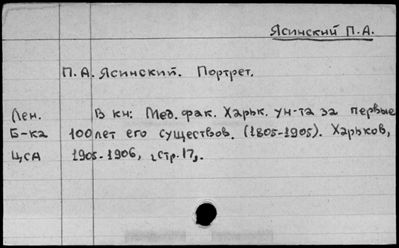 Ясинский П.А.
П.А. Ясинский. Портрет.
Лен. В кн: Мед. фак. Харьк. ун-та за первые
Б-ка 100 лет его существов. (1805-1905). Харьков,
ЦСА 1905-1906, стр. 17,.